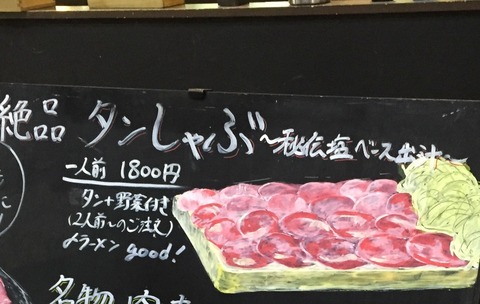 絶品 タンしゃぶ
〜秘伝塩ベース出汁〜
一人前 1800円
タン+野菜付き
(2人前〜のご注文)
〆ラーメン good!
名物